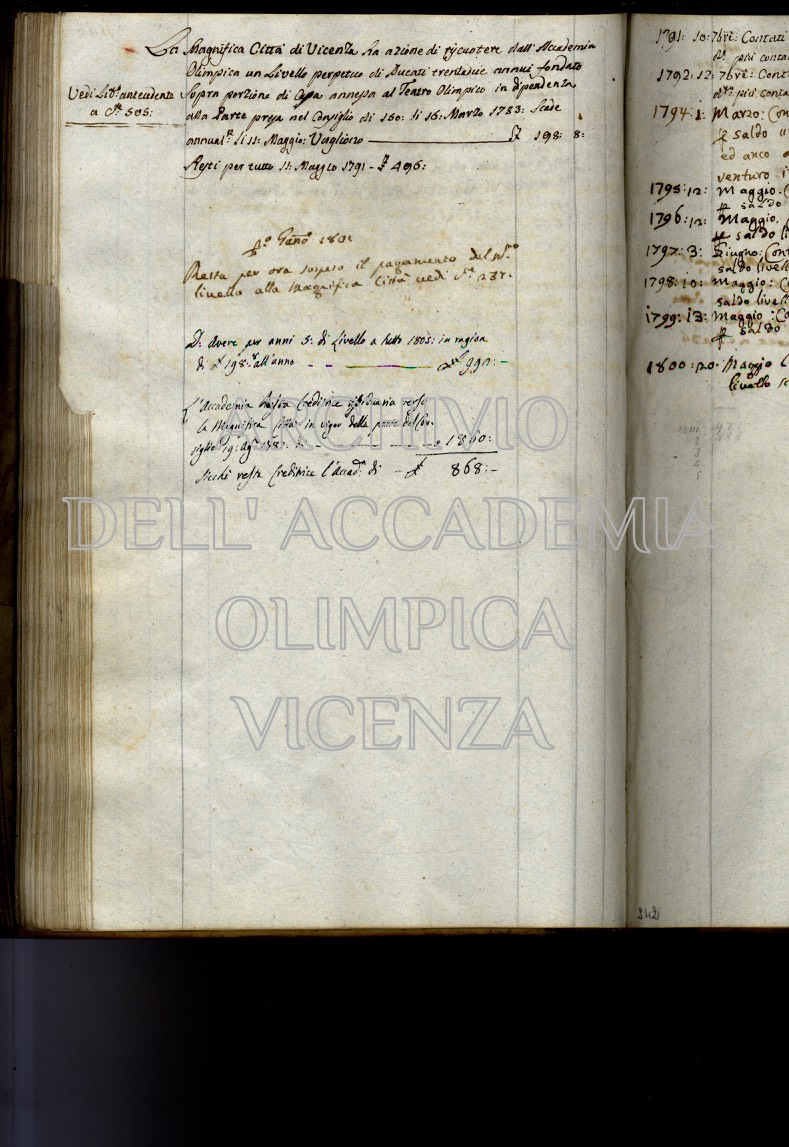 La Magnifica Città di Vicenza ha azione di riscuotere dall' Accademia
Olimpica un Livello perpetuo di Ducati trentadue annui fondato
Vedi Lib:º antecedente
a Cte 505:
sopra porzione di Casa annessa al Teatro Olimpico in dipendenza
alla Parte presa nel Consiglio di 150: li 16: Marzo 1783: Scade
annual.e li 11: Maggio: Vagliono 198: 8:
Resti per tutto 11: Maggio 1791 - 496:
p:º Gennº 1801
Resta per ora sospeso il pagamento del
livello alla Magnifica Città vedi 237.
D. avere per anni 5: di Livello a tutto 1805: in ragion
di 198:8 all'anno 992: -
L'Accademia Creditrice verso
la Magnifica Città in vigor della parte del Con-
siglio 19: Agº di 1860: -
Sicché resta Creditrice l'Accad.a di - 868: -
1791: 10: 7bre: Contati
di più conta
1792: 12: 7bre: Cont
di più conta
1794: 1: Marzo: Con
p saldo
ed anco a
venturo
1795: 12: Maggio. C
p saldo
1796: 12: Maggio.
p saldo li
1797: 3: Giugno: Cont
saldo livell
1798: 10: Maggio: C
saldo livell
1799: 13: Maggio: Co
p saldo
1800: 20: Maggio C
livello s
242
ARCHIVIO
DELL' ACCADEMIA
OLIMPICA
VICENZA